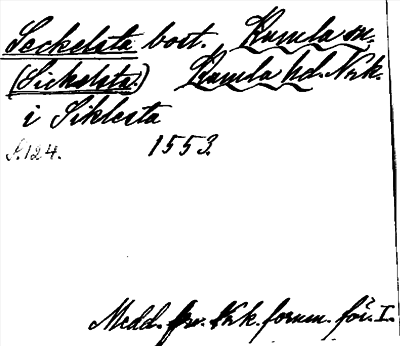 Seckelsta bort. Kumla sn.
(Sickelsta.) Kumla hd. Nrk.
i Siklesta
S. 124. 1553.
Medd. fr. Nrk. fornm. för. I.